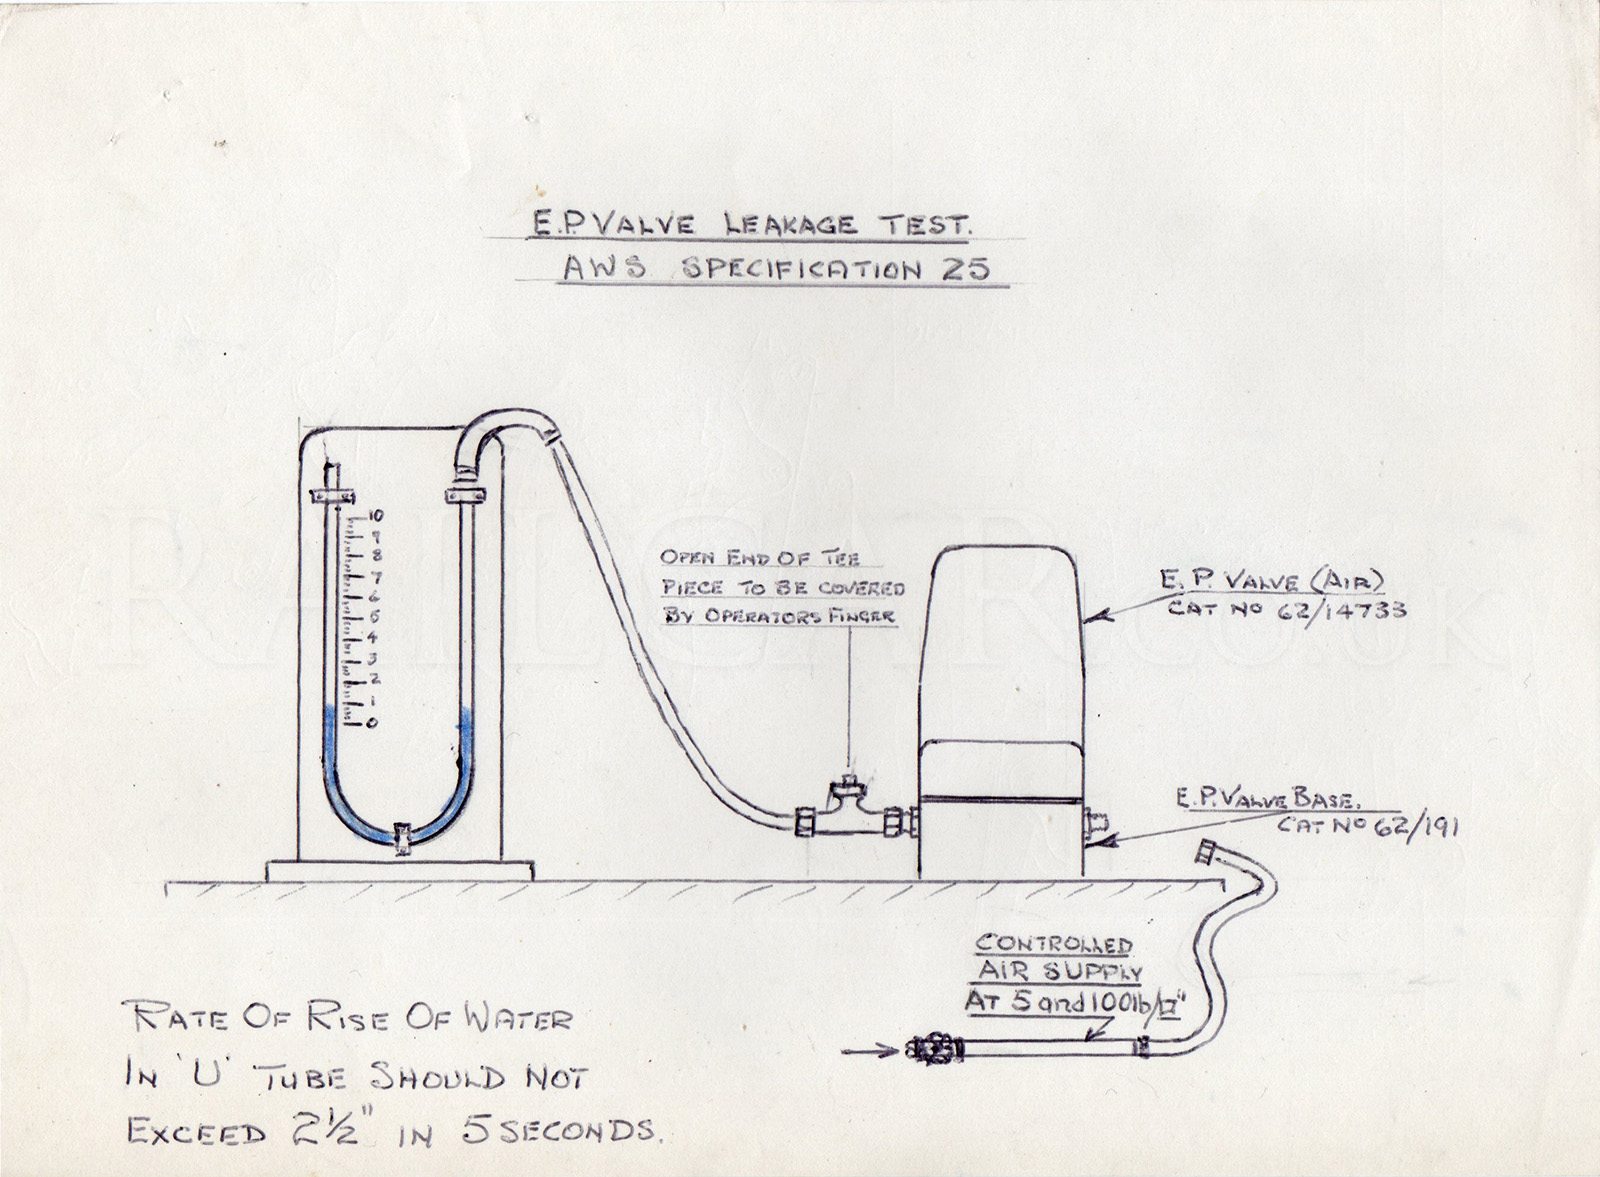 E.P. VALVE LEAKAGE TEST.
AWS SPECIFICATION 25
10
9
8
7
6
5
4
3
2
1
0
OPEN END OF TEE
PIECE TO BE COVERED
BY OPERATORS FINGER
E. P. VALVE (AIR)
CAT NO 62/14733
E.P. VALVE BASE.
CAT NO 62/191
CONTROLLED
AIR SUPPLY
AT 5 and 100lb/□"
RATE OF RISE OF WATER
IN 'U' TUBE SHOULD NOT
EXCEED 2½" IN 5 SECONDS.
RAILCAR.co.uk